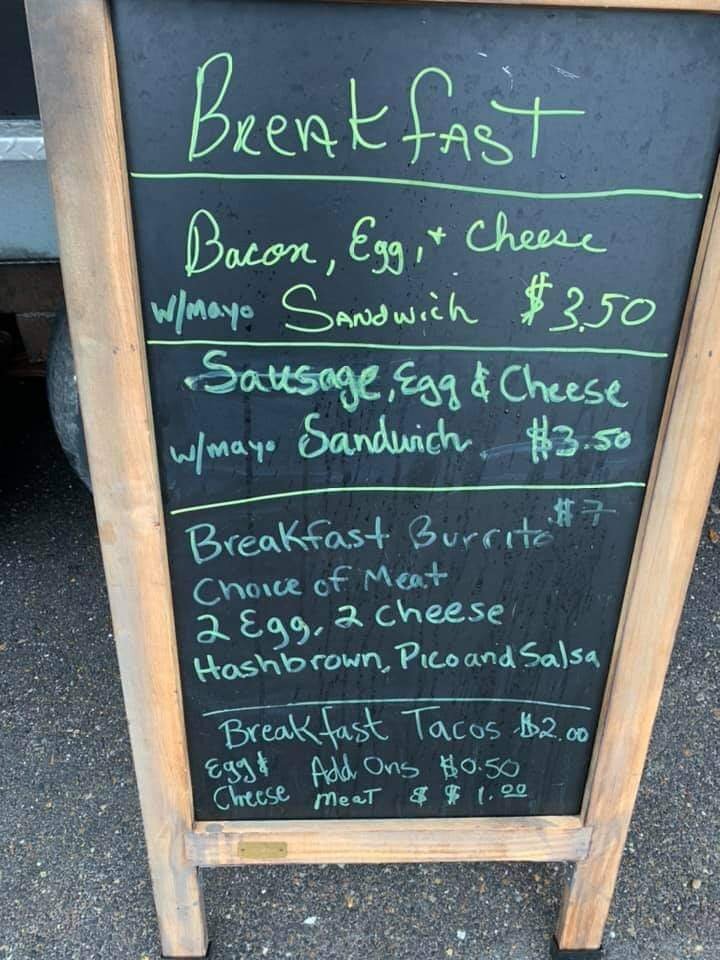 Breakfast
Bacon, Egg, + Cheese
w/mayo Sandwich $3.50
Sausage, Egg & Cheese
w/mayo Sandwich $3.50
Breakfast Burrito $7
Choice of Meat
2 Egg, 2 Cheese
Hashbrown, Pico and Salsa
Breakfast Tacos $2.00
Egg & Add Ons $0.50
Cheese Meat $ $1.00